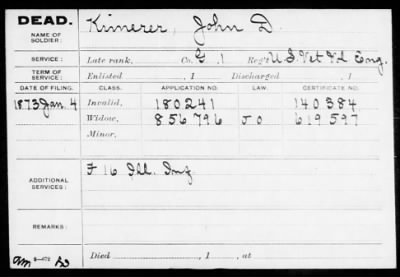 DEAD. Kimerer, John D.
NAME OF SOLDIER:
SERVICE: Late rank, Co. G. 1 Reg't U.S. Vet Vl Eng.
TERM OF SERVICE: Enlisted , 1 Discharged , 1
DATE OF FILING. CLASS. APPLICATION NO. LAW. CERTIFICATE NO.
1873 Jan. 4 Invalid, 180241 140384
Widow, 856796 619597
Minor,
F 16 Ill. Inf
ADDITIONAL SERVICES:
REMARKS:
Died , 1 , at